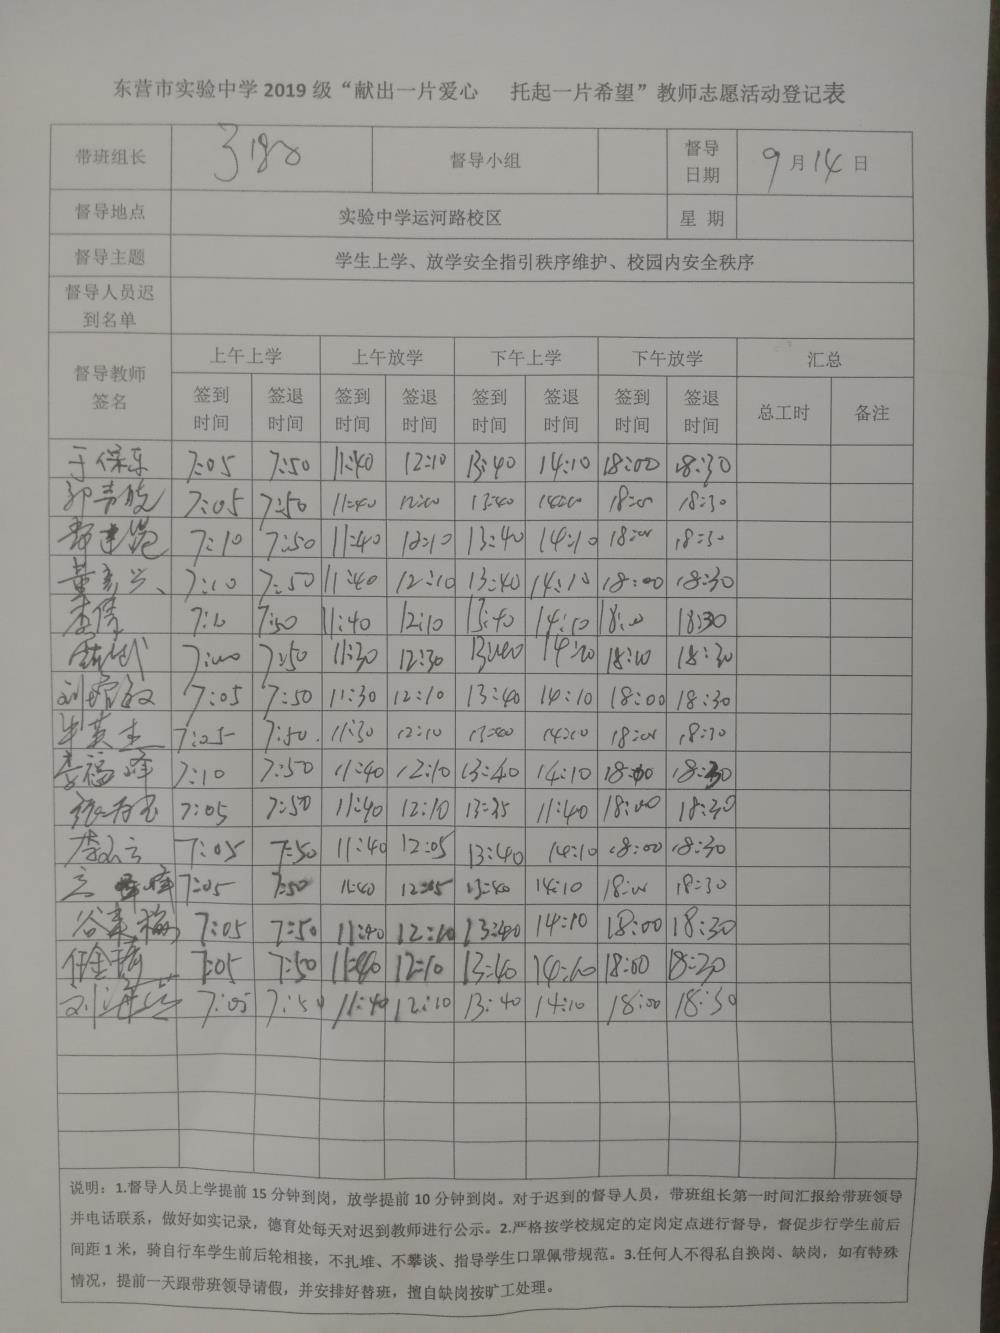 东营市实验中学2019级“献出一片爱心 托起一片希望”教师志愿活动登记表
带班组长 督导小组 督导日期 9月14日
督导地点 实验中学运河路校区 星 期
督导主题 学生上学、放学安全指引秩序维护、校园内安全秩序
督导人员迟到名单
督导教师签名 上午上学 上午放学 下午上学 下午放学 汇总
签到时间 签退时间 签到时间 签退时间 签到时间 签退时间 签到时间 签退时间 总工时 备注
于保东 7:05 7:50 11:40 12:10 13:40 14:10 18:00 18:30
7:05 7:50 11:40 13:40 18:00 18:30
7:10 7:50 11:40 12:10 13:40 14:10 18:00 18:30
7:10 7:50 11:40 12:10 13:40 14:10 18:00 18:30
李倩 7:50 11:40 12:10 13:40 14:10 18:00 18:30
7:00 7:50 11:30 12:30 18:30
7:05 7:50 11:30 12:10 13:40 14:10 18:00 18:30
牟英杰 7:05 7:50. 11:30 12:10 13:40 14:10 18:00 18:30
李福峰 7:10 7:50 11:40 12:10 13:40 14:10 18:00 18:30
7:05 7:50 11:40 12:10 13:35 11:40 18:00 18:30
7:05 7:50 11:40 12:05 13:40 14:10 18:00 18:30
7:05 7:50 11:40 12:05 13:40 14:10 18:00 18:30
谷素梅 7:05 7:50 11:40 12:10 13:40 14:10 18:00 18:30
任金琦 7:05 7:50 11:40 12:10 13:40 14:10 18:00 18:30
刘海燕 7:05 7:50 11:40 12:10 13:40 14:10 18:00 18:30
说明：1.督导人员上学提前15分钟到岗，放学提前10分钟到岗。对于迟到的督导人员，带班组长第一时间汇报给带班领导
并电话联系，做好如实记录，德育处每天对迟到教师进行公示。2.严格按学校规定的定岗定点进行督导，督促步行学生前后
间距1米，骑自行车学生前后轮相接，不扎堆、不攀谈、指导学生口罩佩带规范。3.任何人不得私自换岗、缺岗，如有特殊
情况，提前一天跟带班领导请假，并安排好替班，擅自缺岗按旷工处理。